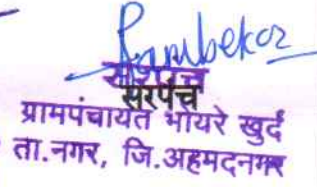 Rambekar
सरपंच
सरपंच
ग्रामपंचायत भोयरे खुर्द
ता.नगर, जि.अहमदनगर